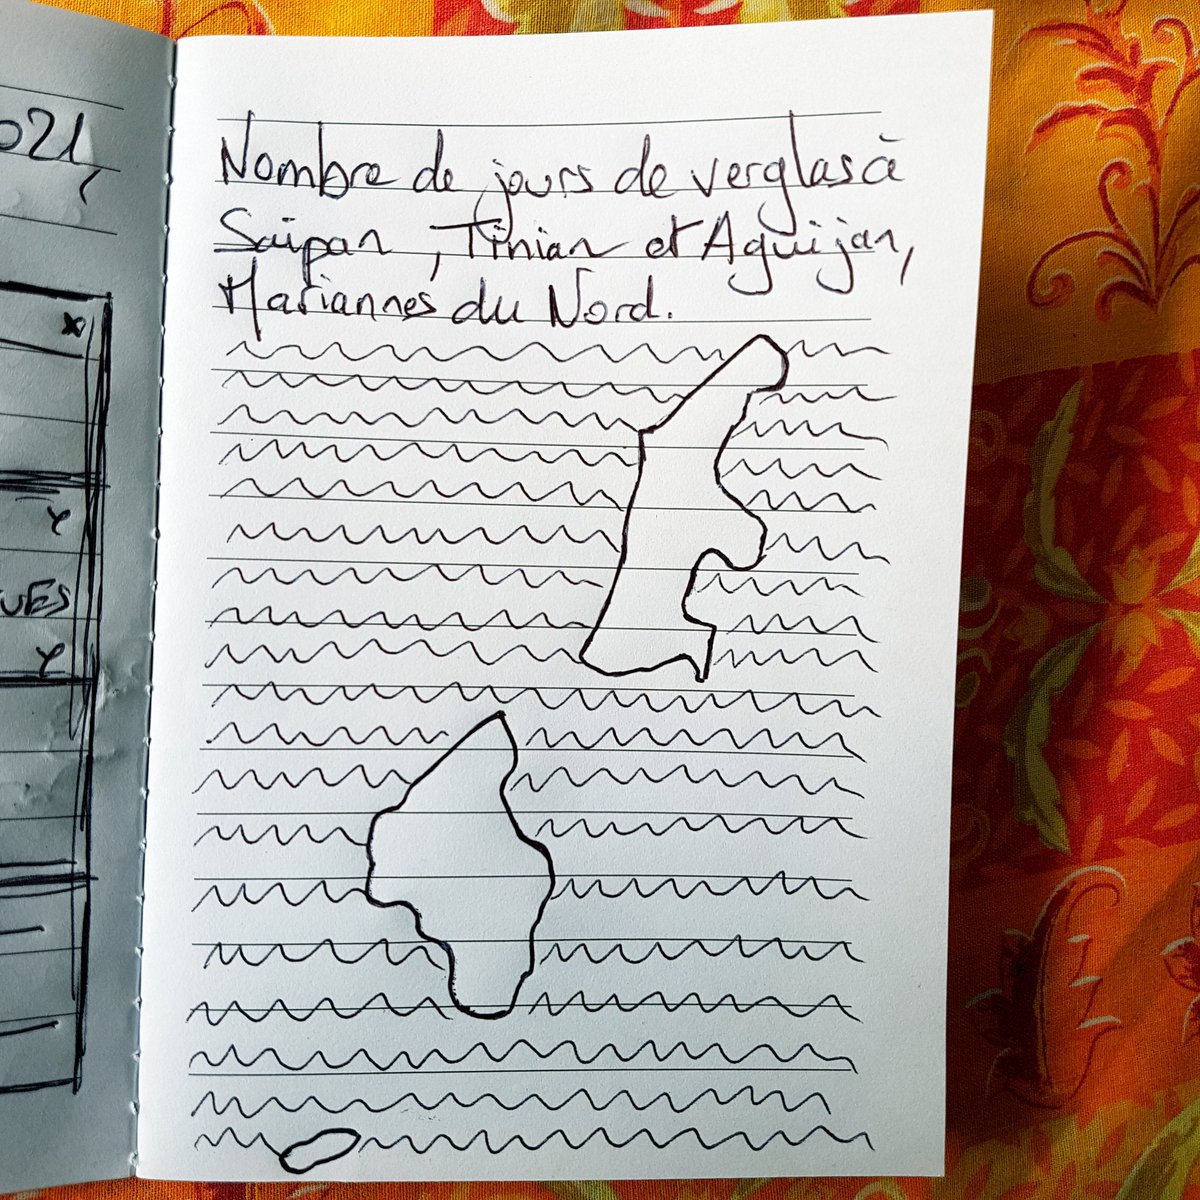 021
Nombre de jours de verglas à
Saipan, Tinian et Aguijan,
Mariannes du Nord.
UES